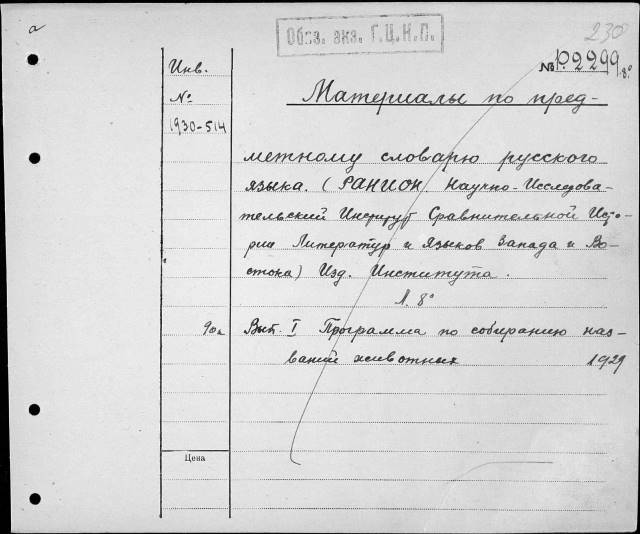 а
Обяз. экз. Г.Ц.К.П.
230
№ 1022998°
Инв.
№
1930-514
Материалы по пред-
метному словарю русского
языка. (РАНИОН. Научно-Исследова-
тельский Институт Сравнительной Исто-
рии Литератур и Языков Запада и Во-
стока) Изд. Института.
Л. 8°
Вып. I Программа по собиранию наз-
ваний животных 1929
Цена